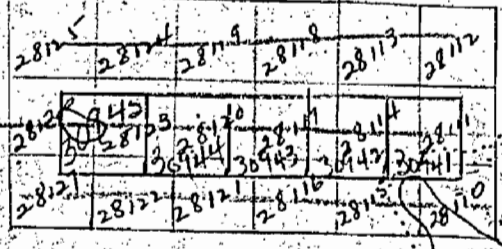 28125 28124 28119 28118 28113 28112
28126 28123 28120 28117 28114 28111
30944 30943 30942 30941
28127 28122 28121 28116 28115 28110